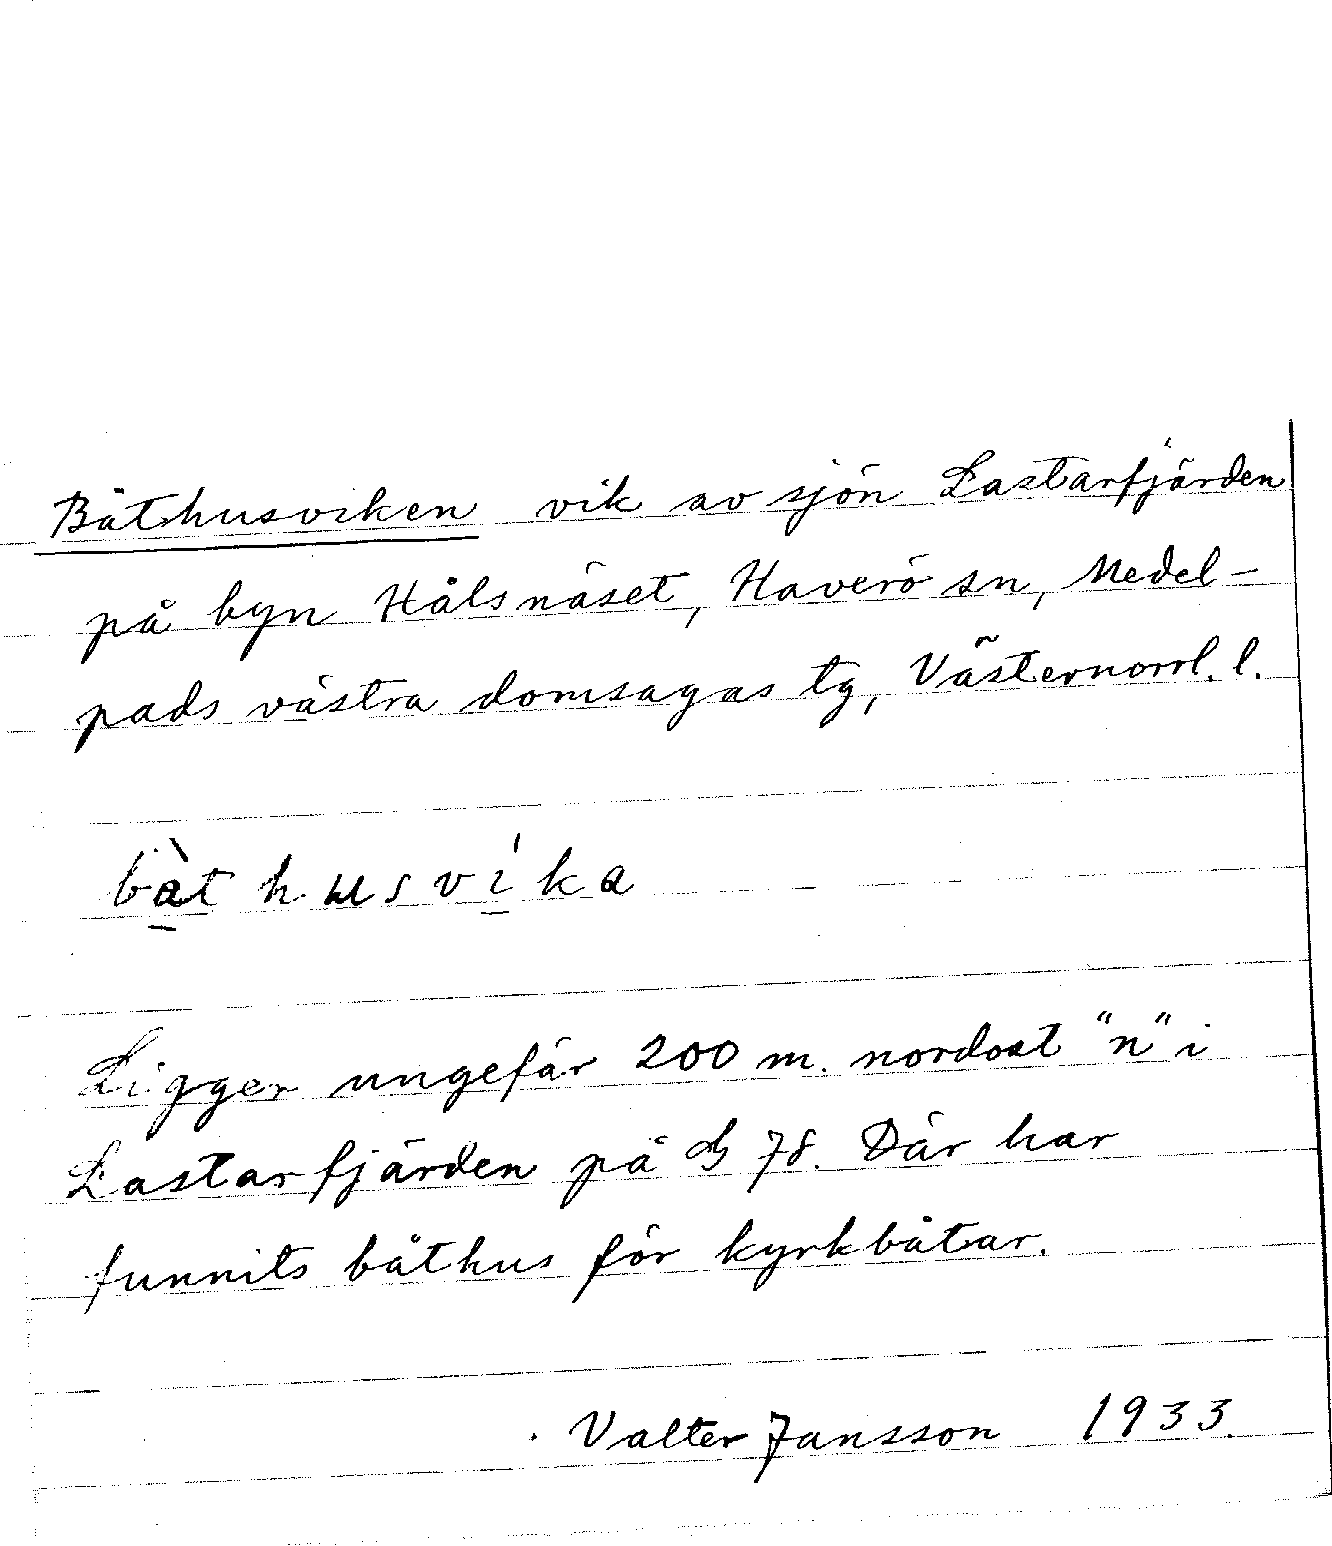 Båthusviken vik av sjön Lastarfjärden
på byn Hålsnäset, Haverö sn, Medel-
pads västra domsagas tg, Västernorrl. l.
bå̀thusvíka
Ligger ungefär 200 m. nordost "n" i
Lastarfjärden på G 78. Där har
funnits båthus för kyrkbåtar.
Valter Jansson 1933.